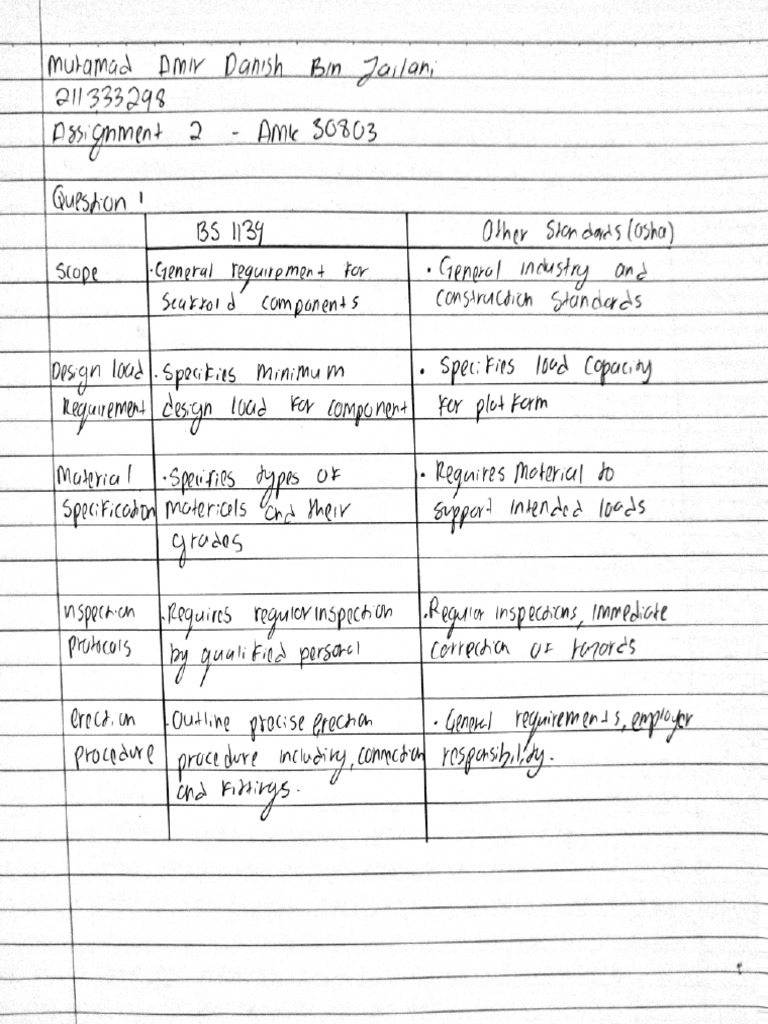 Muhamad Amir Danish Bin Jailani
211333298
Assignment 2 - Amk 30803
Question 1
BS 1139 Other Standards (osha)
Scope · General requirement for · General industry and
scaffold components construction standards
Design load · Specifies minimum · Specifies load capacity
Requirement design load for component for platform
Material · Specifies types of · Requires Material to
Specification materials and their support intended loads
grades
inspection · Requires regular inspection · Regular inspections, immediate
protocols by qualified personal correction of hazards
erection · Outline precise erection · General requirements, employer
procedure procedure including, connection responsibility.
and fittings.